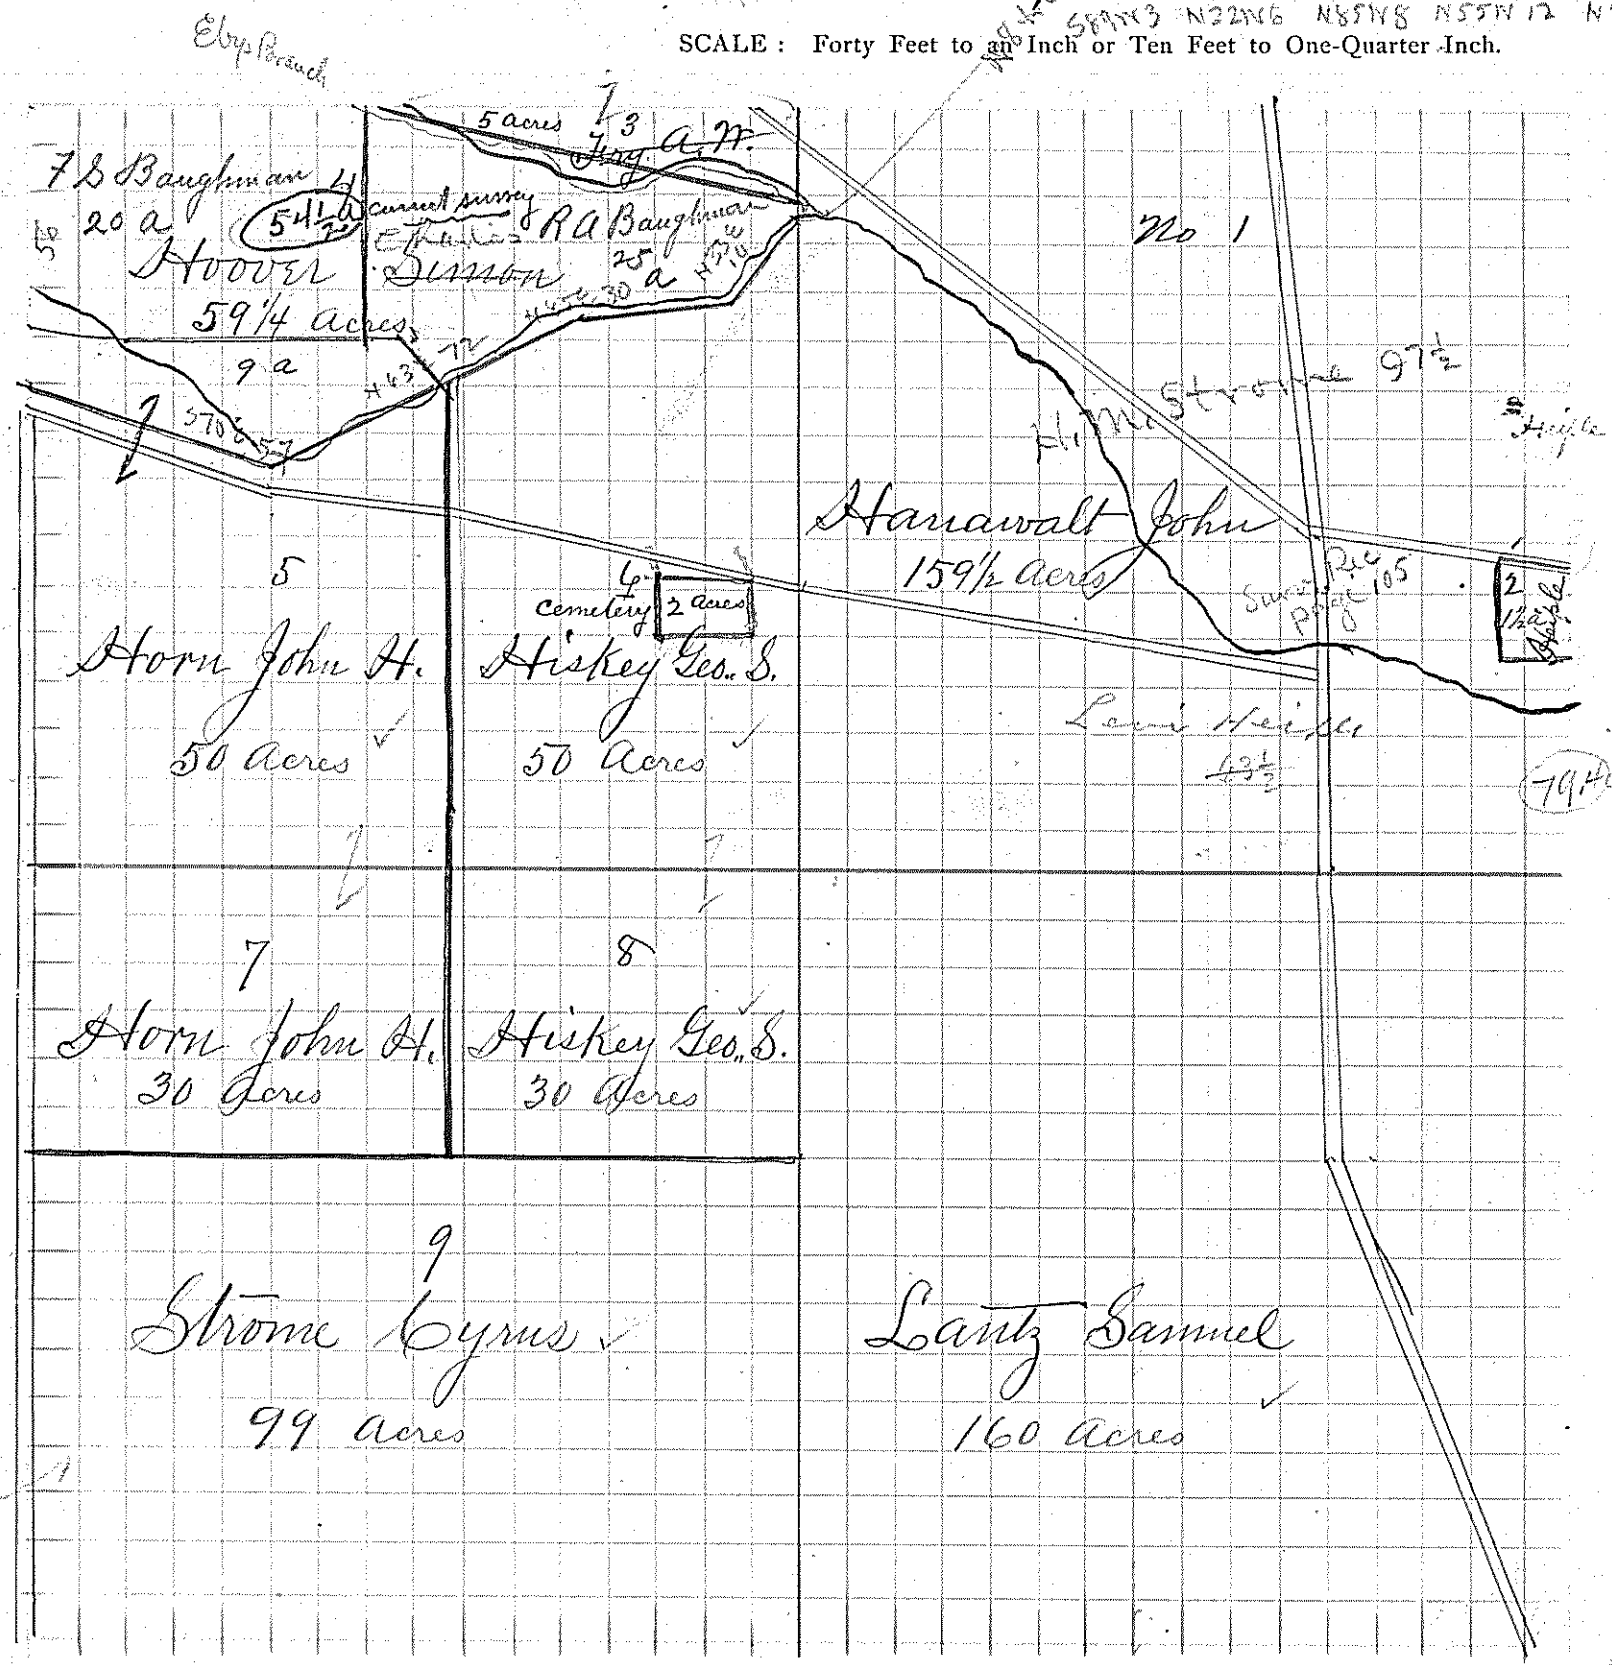 Ebys Branch
S89W3 N32W6 N85W8 N55W12
SCALE : Forty Feet to an Inch or Ten Feet to One-Quarter Inch.
5 acres 3
Fry A. W.
7 S Baughman
20 a
4
54½ a
correct survey
R A Baughman
25 a
Hoover Simon
59 1/4 Acres
30
9 a
N 43 72
S70E 57
No 1
H. M. Strome 97½
Hanawalt John
159½ Acres
2
Heiple
2
1½ a
Heiple
page 105
5
Horn John H.
50 Acres
6
Cemetery 2 acres
Hiskey Geo. S.
50 Acres
Levi Heiple
43½
79
7
Horn John H.
30 Acres
8
Hiskey Geo. S.
30 Acres
9
Strome Cyrus
99 Acres
Lantz Samuel
160 Acres